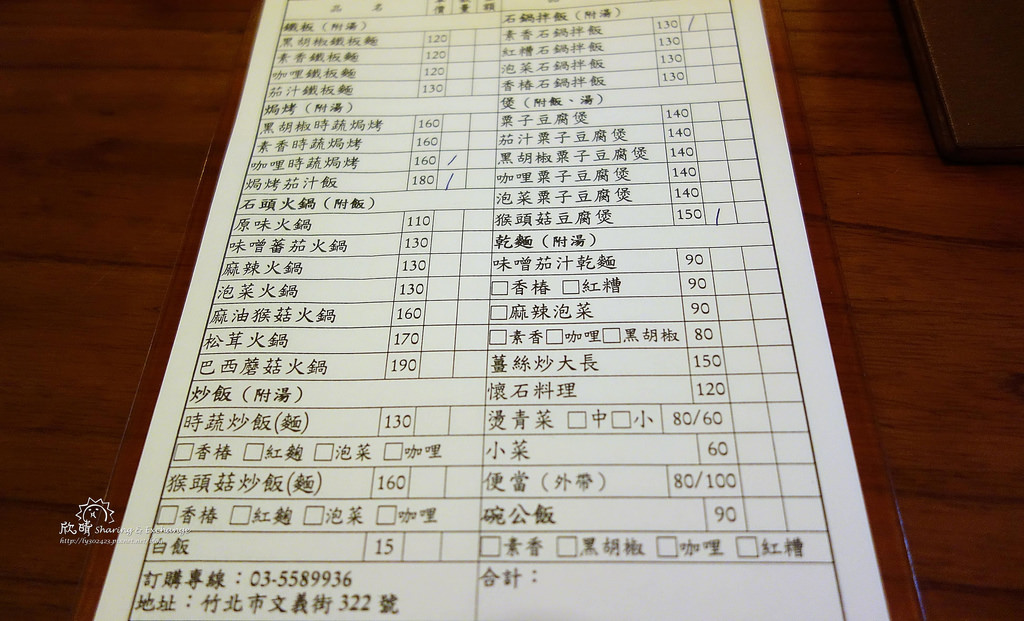 品 名 單價 數量 金額
鐵板（附湯）
黑胡椒鐵板麵 120
素香鐵板麵 120
咖哩鐵板麵 120
茄汁鐵板麵 130
焗烤（附湯）
黑胡椒時蔬焗烤 160
素香時蔬焗烤 160
咖哩時蔬焗烤 160 /
焗烤茄汁飯 180 /
石頭火鍋（附飯）
原味火鍋 110
味噌蕃茄火鍋 130
麻辣火鍋 130
泡菜火鍋 130
麻油猴菇火鍋 160
松茸火鍋 170
巴西蘑菇火鍋 190
炒飯（附湯）
時蔬炒飯(麵) 130
□香椿 □紅麴 □泡菜 □咖哩
猴頭菇炒飯(麵) 160
□香椿 □紅麴 □泡菜 □咖哩
白飯 15
訂購專線：03-5589936
地址：竹北市文義街322號
石鍋拌飯（附湯）
素香石鍋拌飯 130 /
紅糟石鍋拌飯 130
泡菜石鍋拌飯 130
香椿石鍋拌飯 130
煲（附飯、湯）
粟子豆腐煲 140
茄汁粟子豆腐煲 140
黑胡椒粟子豆腐煲 140
咖哩粟子豆腐煲 140
泡菜粟子豆腐煲 140
猴頭菇豆腐煲 150 /
乾麵（附湯）
味噌茄汁乾麵 90
□香椿 □紅糟 90
□麻辣泡菜 90
□素香□咖哩□黑胡椒 80
薑絲炒大長 150
懷石料理 120
燙青菜 □中□小 80/60
小菜 60
便當（外帶） 80/100
碗公飯 90
□素香 □黑胡椒 □咖哩 □紅糟
合計：
欣晴 Sharing & Exchange